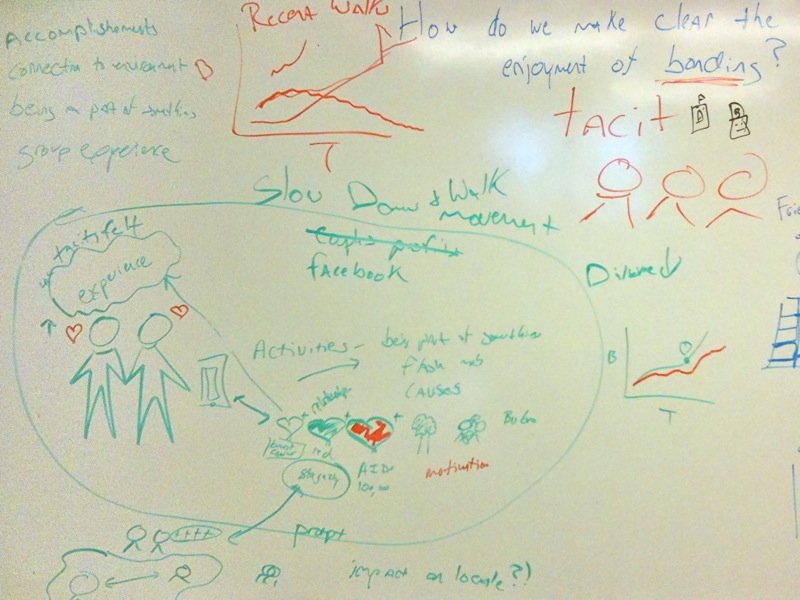 Accomplishments
connection to environment
being a part of something
group experience
Recent Walks
B
T
How do we make clear the
enjoyment of bonding?
tacit
Slow Down & Walk
movement
facebook
tacit felt
experience
Activities - being part of something
flash mobs
CAUSES
relationship
motivation
AID
Divorced
B
T
impact on locale?)